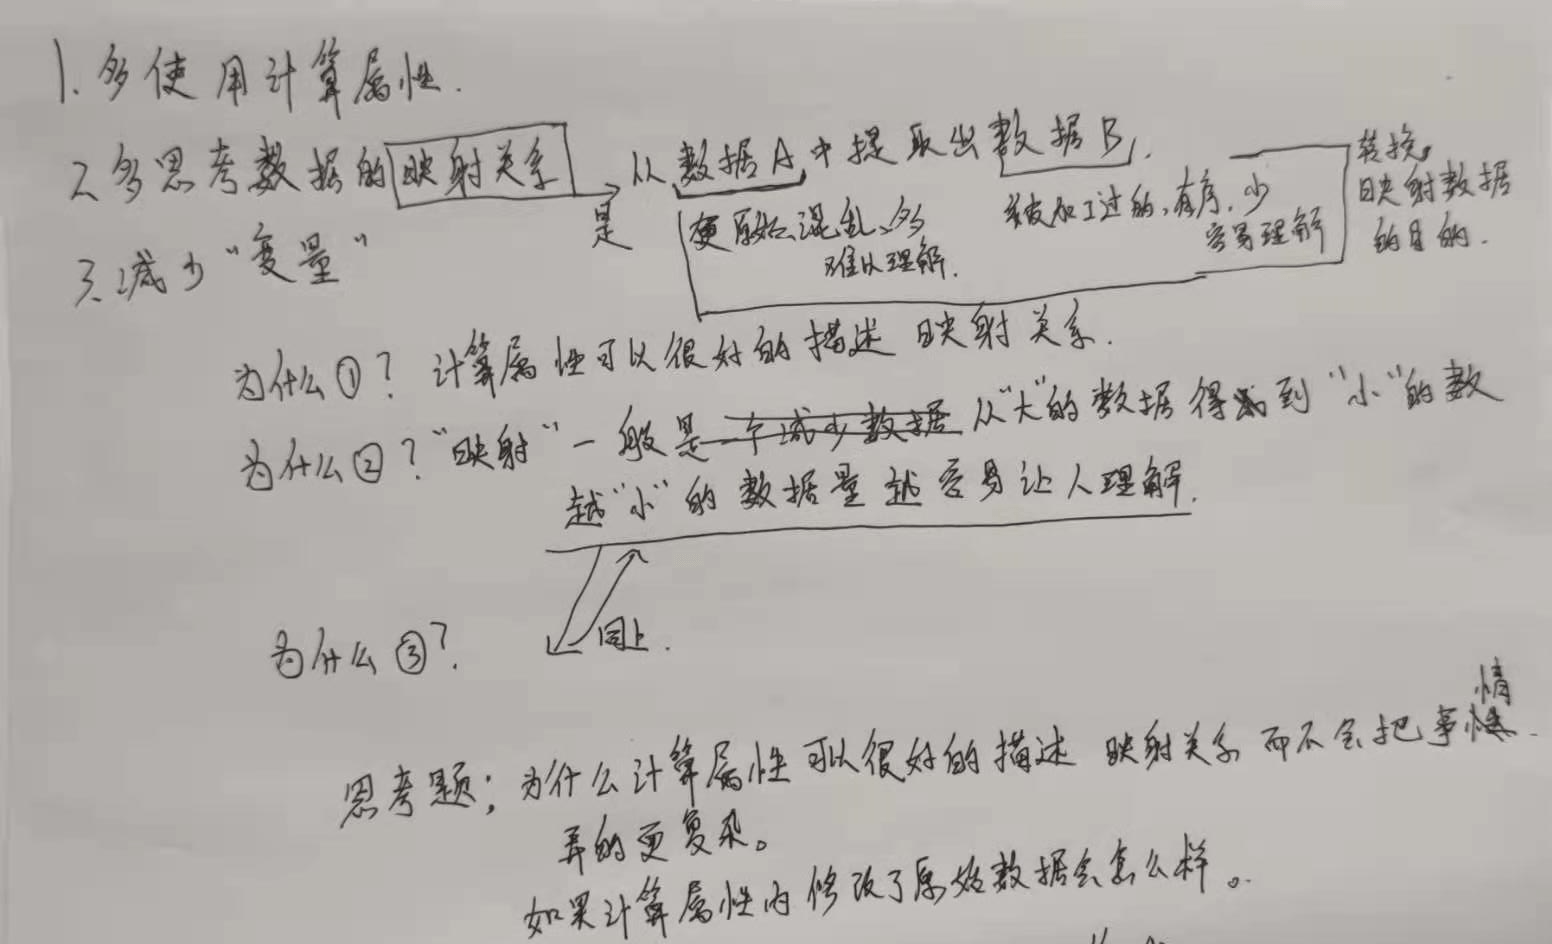 1.多使用计算属性.
2.多思考数据的映射关系
是
从数据A中提取出数据B,.
更原始、混乱、多
难以理解.
被加工过的,有序,少
容易理解
转换,
映射数据
的目的.
3.减少"变量"
为什么①?计算属性可以很好的描述映射关系.
为什么②?"映射"一般是一个减少数据从"大"的数据得到"小"的数
越"小"的数据量越容易让人理解.
为什么③?
同上.
思考题;为什么计算属性可以很好的描述映射关系而不会把事情.
弄的更复杂。
如果计算属性内修改了原始数据会怎么样。